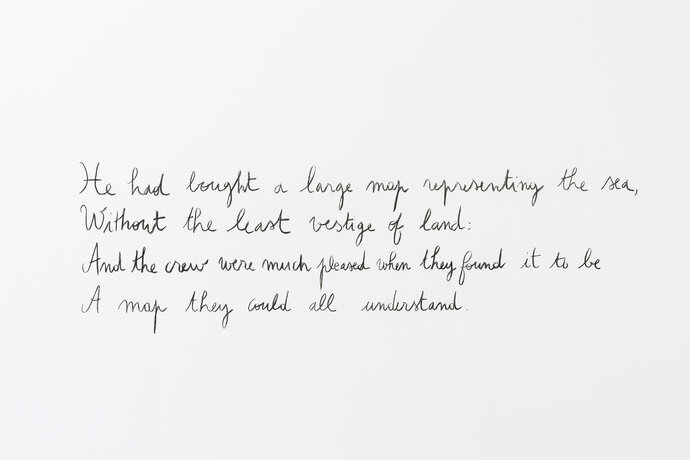 He had bought a large map representing the sea,
Without the least vestige of land:
And the crew were much pleased when they found it to be
A map they could all understand.